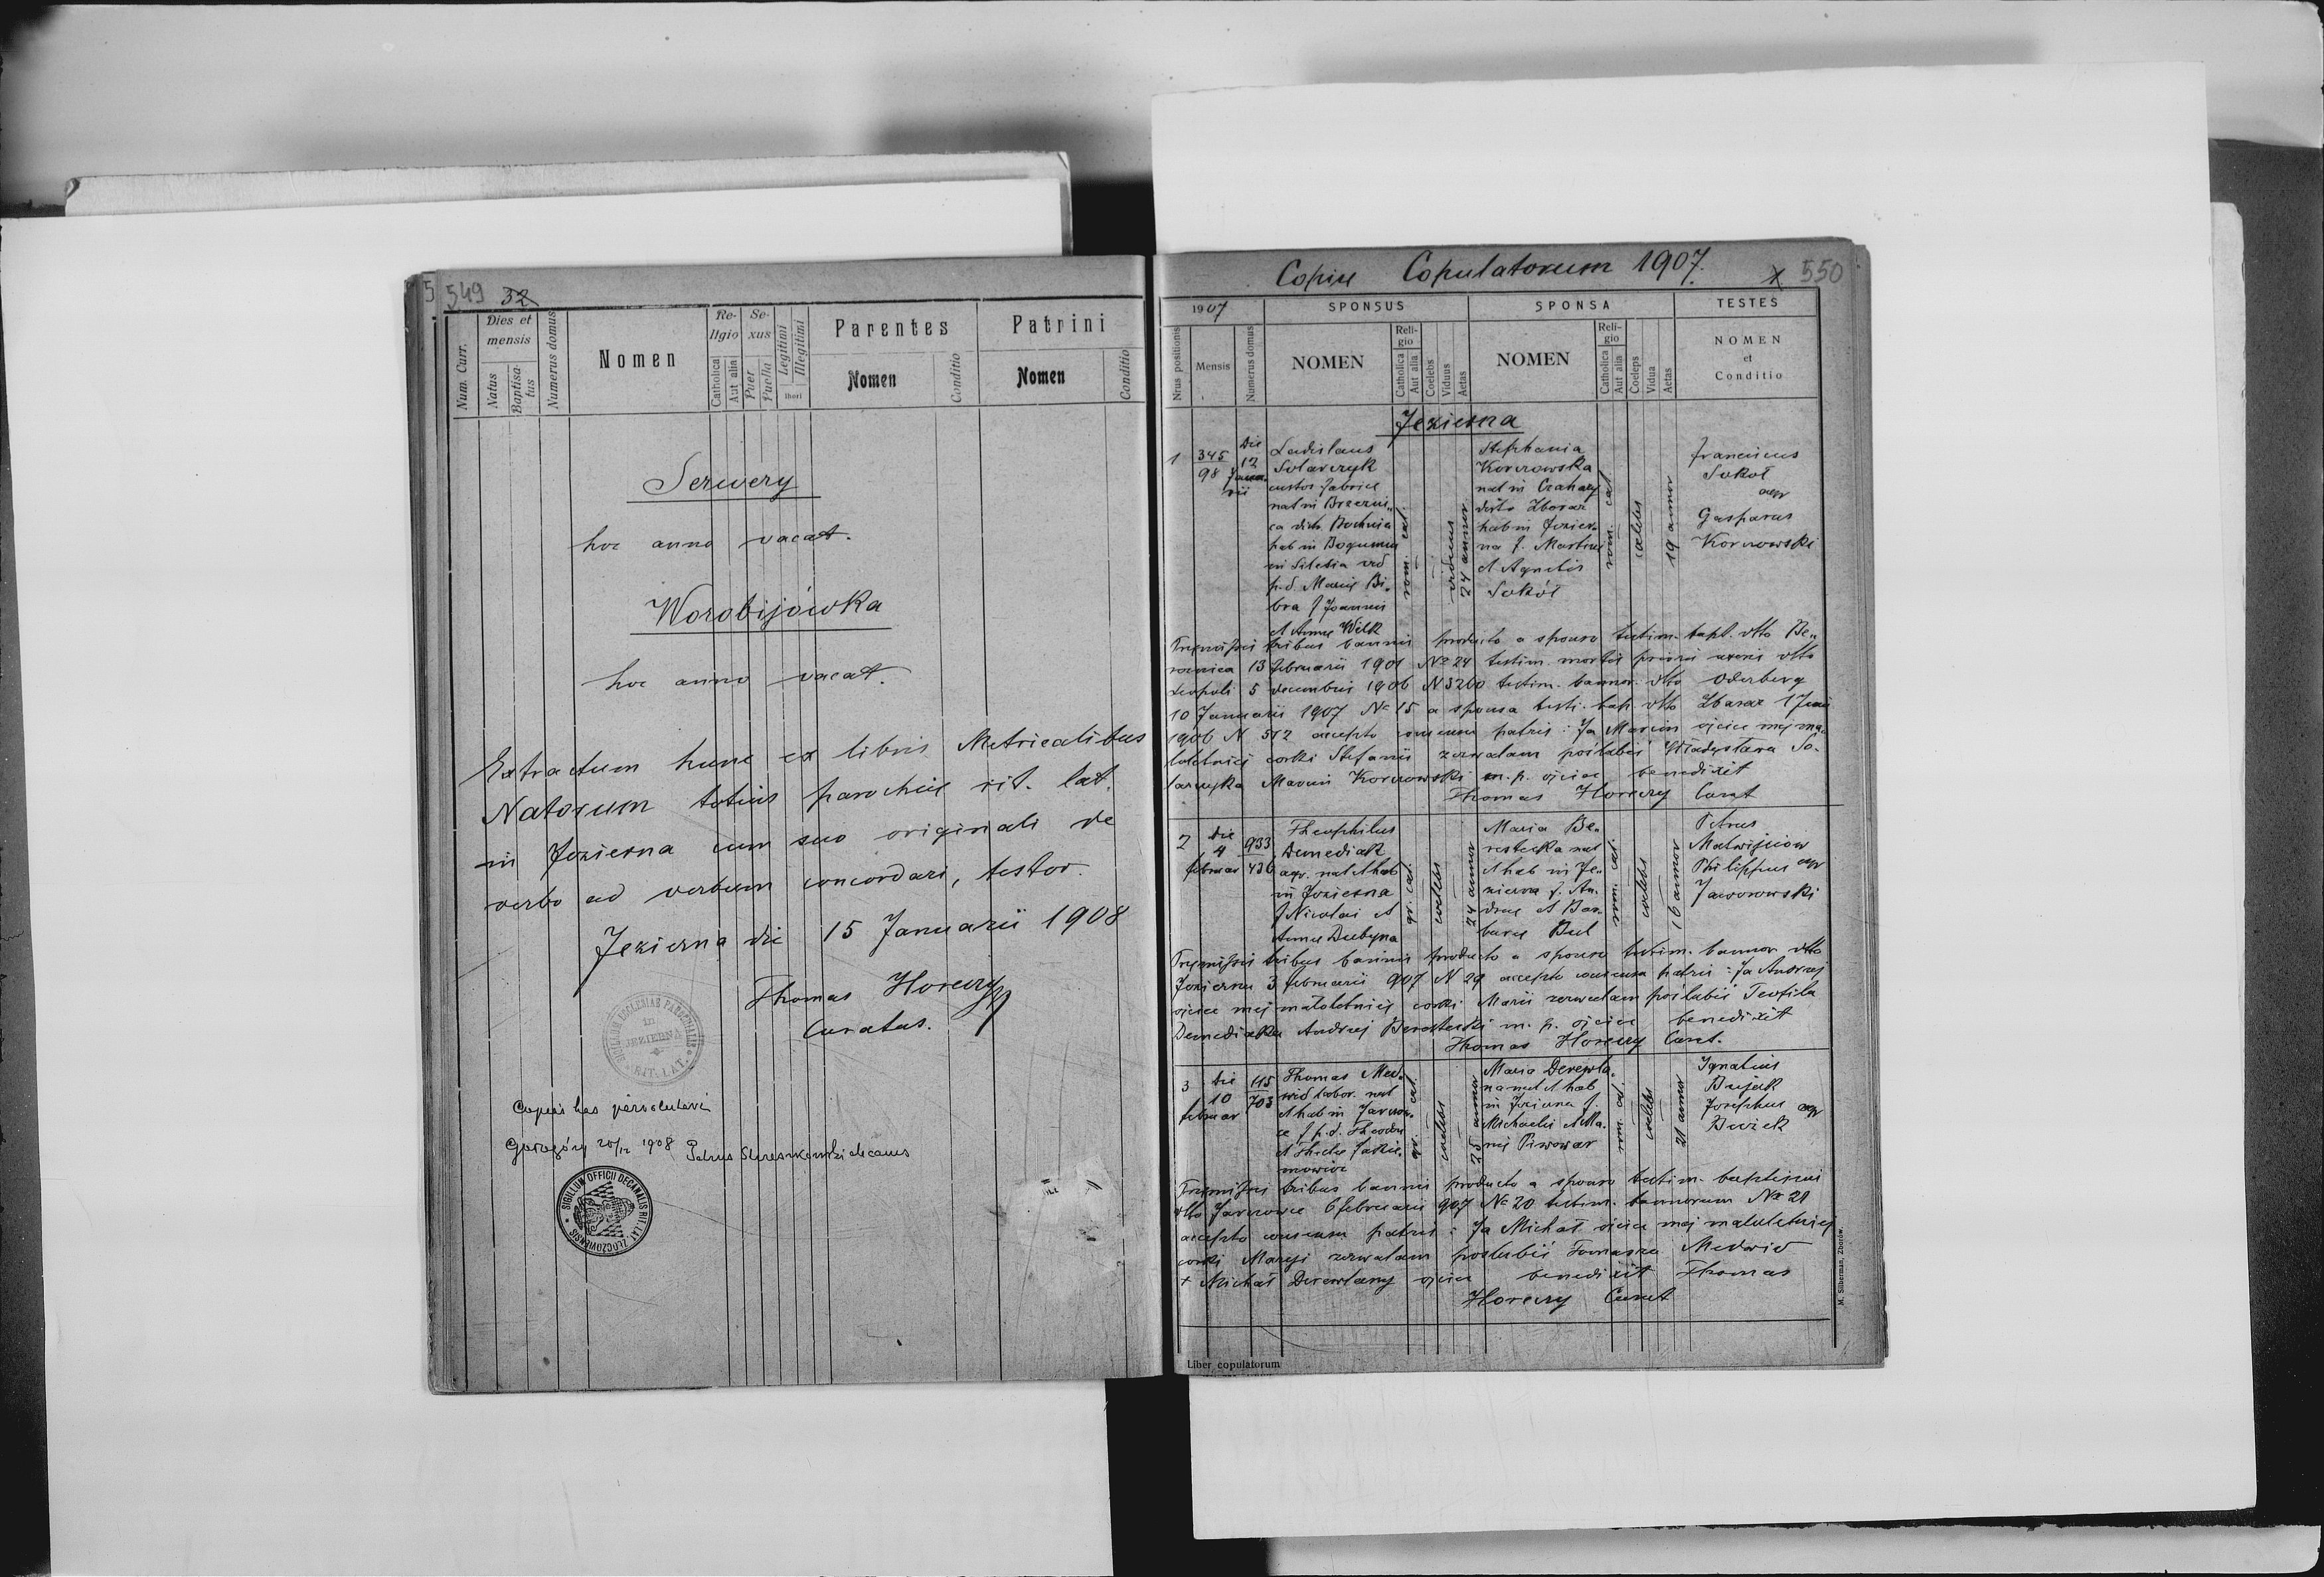 549 32
Num. Curr.
Dies et mensis
Natus
Baptisa-
tus
Numerus domus
Nomen
Re-
ligio
Catholica
Aut alia
Se-
xus
Puer
Puella
Legitimi
Illegitimi
thori
Parentes
Nomen
Conditio
Patrini
Nomen
Conditio
Serwery
hoc anno vacat.
Worobijówka
hoc anno vacat.
Extractum hunc ex libris Metricalibus
Natorum totius parochiæ rit. lat.
in Jezierna cum suo originali de
verbo ad verbum concordari, testor.
Jezierna die 15 Januarii 1908
Thomas Horeczy
Curatus.
SIGILLUM ECCLESIAE PAROCHIALIS
in
JEZIERNA
RIT. LAT.
Copias has
1908 Petrus decanus
SIGILLUM OFFICII DECANALIS RIT. LAT. ZŁOCZOVIENSIS
Copiæ Copulatorum 1907. 550
1907
SPONSUS
SPONSA
TESTES
Nrus positionis
Mensis
Numerus domus
NOMEN
Reli-
gio
Catholica
Aut alia
Coelebs
Viduus
Aetas
NOMEN
Reli-
gio
Catholica
Aut alia
Coeleps
Vidua
Aetas
NOMEN
et
Conditio
Jezierna
1
345
98
Die
12
Janua-
rii
Ladislaus
Solarczyk
custos fabricæ
nat in Brzezni-
ca distr. Bochnia
hab in Bogumin
in Silesia vid
p.d. Mariæ Bi-
bra f Joannis
et Annæ Wilk
rom. cat.
viduus
24 annor
Stephania
Korczowska
nat in Czahary
distr. Zbaraz
hab in Jezier-
na f. Martini
et Agnetis
Sokół
rom. cat
cælebs
19 annor
Franciscus
Sokół
agr
Gasparus
Korczowski
Præmissis tribus bannis producto a sponso testim. bapt. dtto
13 februarii 1901 Nº 24 testim. mortis prioris uxoris dtto
Leopoli 5 decembris 1906 N 3260 testim. bannor. dtto Oderberg
10 Januarii 1907 Nº 15 a sponsa testi. bap. dtto Zbaraz 1 Juni
1906 N 512 accepto consensu patris: Ja Marcin ojciec mej ma-
łoletniej córki Stefanii zezwalam poślubić Władysława So-
larczyka Marcin Korczowski m. p. ojciec benedixit
Thomas Horeczy Curat
2
Die
4
februar
933
436
Theophilus
Demediak
agr. nat et hab
in Jezierna
f Nicolai et
Annæ Dubyna
gr. cat.
cælebs
24 annor
Maria Be-
restecka nat
et hab in Je-
zierna f. An-
dreæ et Bar-
baræ Bul
rom. cat.
cælebs
16 annor
Petrus
Matwijciów
Philippus agr
Jaworowski
Præmissis tribus bannis producto a sponso testim. bannor dtto
Jezierna 3 februarii 907 N 29 accepto consensu patris: Ja Andrzej
ojciec mej małoletniej córki Marii zezwalam poślubić Teofila
Demediaka Andrzej Berestecki m. p. ojciec benedixit
Thomas Horeczy Curat.
3
Die
10
februar
115
703
Thomas Med-
wid labor. nat
et hab in Jarczow-
ce f p.d. Theodori
et Theclæ Jakie-
mowicz
gr. cat.
cælebs
25 annor
Maria Derewla-
na nat et hab
in Jezierna f.
Michaelis et Ma-
riæ Piwowar
rom. cat.
cælebs
21 annor
Ignatius
Bujak
Josephus agr
Præmissis tribus bannis producto a sponso testim. baptismi
dtto Jarczowce 6 februarii 907 Nº 20 testim. bannorum Nº 21
accepto consensu patris: Ja Michał ojciec mej małoletniej
córki Maryi zezwalam poślubić Tomasza Medwid
+ Michał Derewlany ojciec benedixit Thomas
Horeczy Curat
Liber copulatorum
M. Silberman, Zborów.